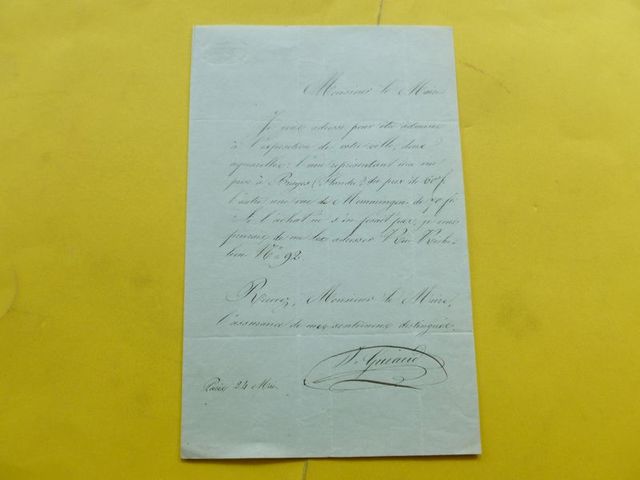 Monsieur le Maire
Je vous adresse pour être admises
à l'exposition de votre ville, deux
aquarelles: l'une représentant une vue
prise à Bruges (Flandre) du prix de 60 f
l'autre une vue de de 70 f.
Si l'achat ne s'en faisait pas, je vous
prierais de me les adresser Rue
N° 92.
Recevez, Monsieur le Maire,
l'assurance de mes sentiments distingués
Paris 24 Mai